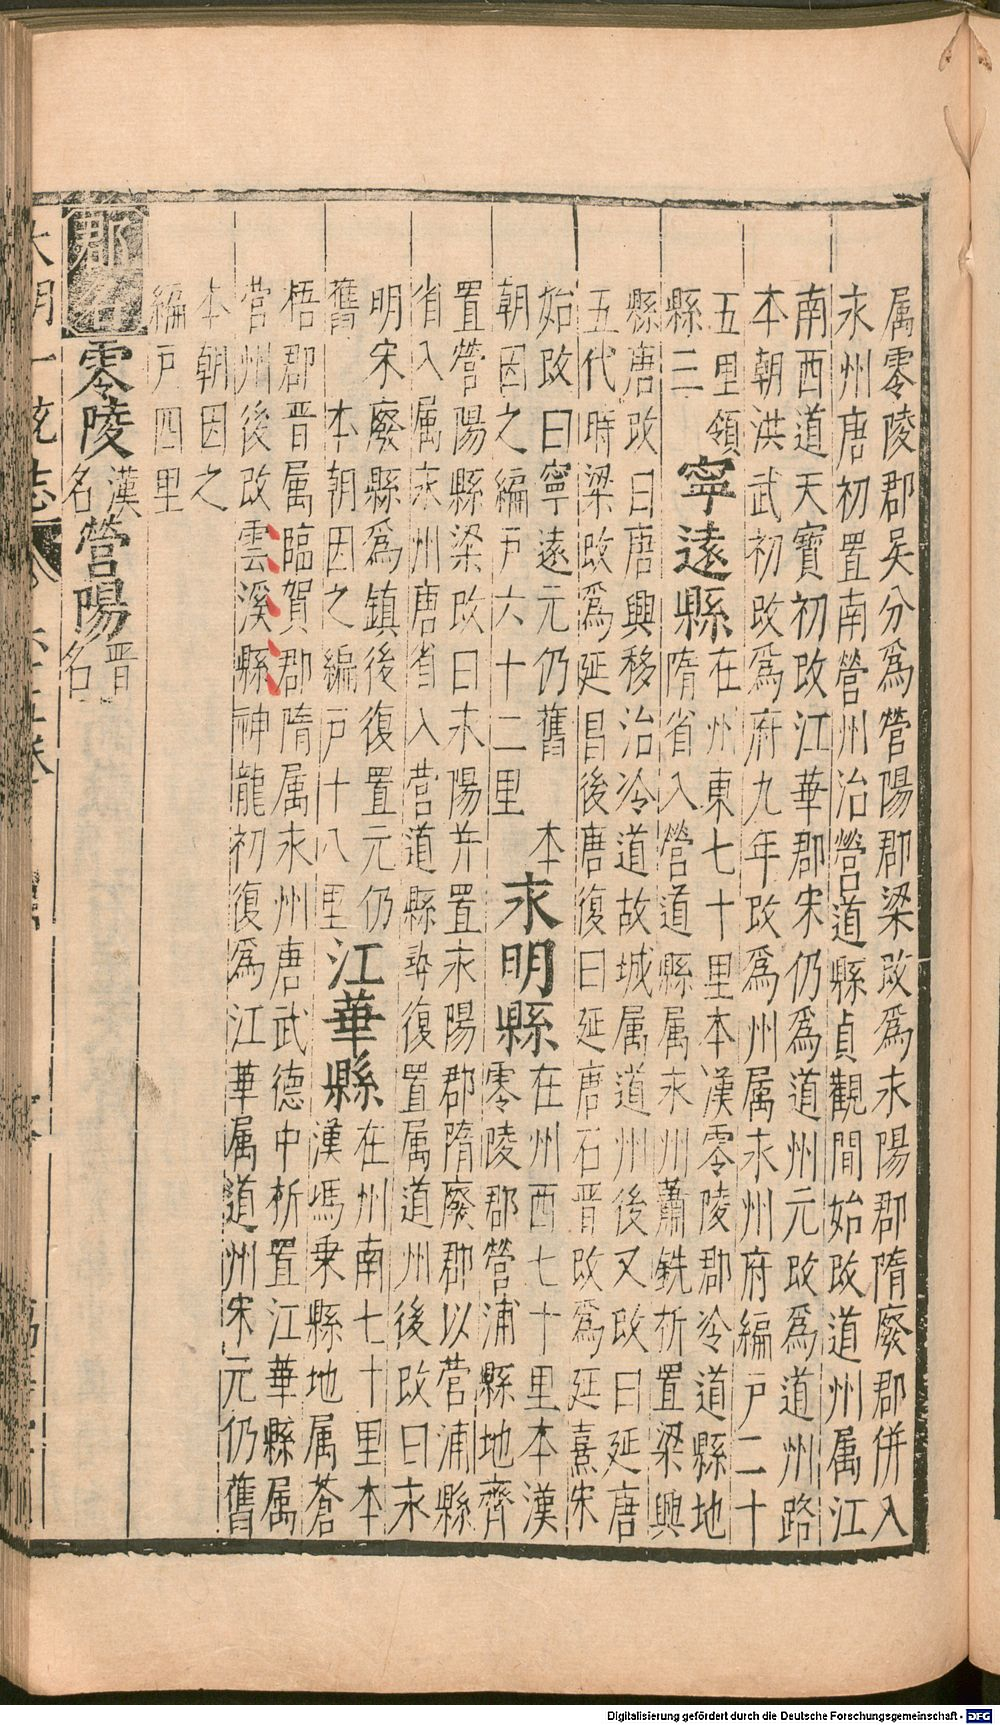 属零陵郡吴分爲營陽郡梁改爲永陽郡隋廢郡併入
永州唐初置南營州治營道縣貞觀間始改道州属江
南西道天寶初改江華郡宋仍爲道州元改爲道州路
本朝洪武初改爲府九年改爲州属永州府編户二十
五里領
縣三
寧遠縣
在州東七十里本漢零陵郡泠道縣地
隋省入營道縣属永州蕭銑析置梁興
縣唐改曰唐興移治泠道故城属道州後又改曰延唐
五代時梁改爲延昌後唐復曰延唐石晋改爲延熹宋
始改曰寧遠元仍舊　本
朝因之編户六十二里
永明縣
在州西七十里本漢
零陵郡營浦縣地齊
置營陽縣梁改曰永陽并置永陽郡隋廢郡以营浦縣
省入属永州唐省入营道縣尋復置属道州後改曰永
明宋廢縣爲鎮後復置元仍
舊　本朝因之編户十八里
江華縣
在州南七十里本
漢馮乘縣地属蒼
梧郡晋属臨賀郡隋属永州唐武德中析置江華縣属
营州後改雲溪縣神龍初復爲江華属道州宋元仍舊
本朝因之
編户四里
郡名
零陵
漢
名
營陽
晋
名
大明一統志
Digitalisierung gefördert durch die Deutsche Forschungsgemeinschaft - DFG